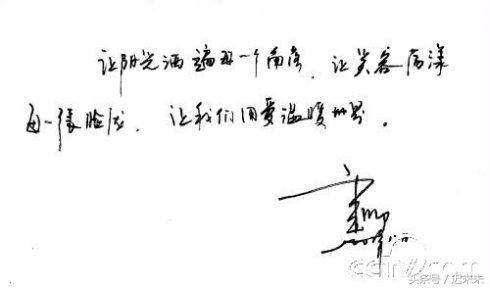 让阳光洒遍每一个角落,让笑容荡漾
每一张脸庞,让我们用爱温暖世界。
cctv.com
头条号 /